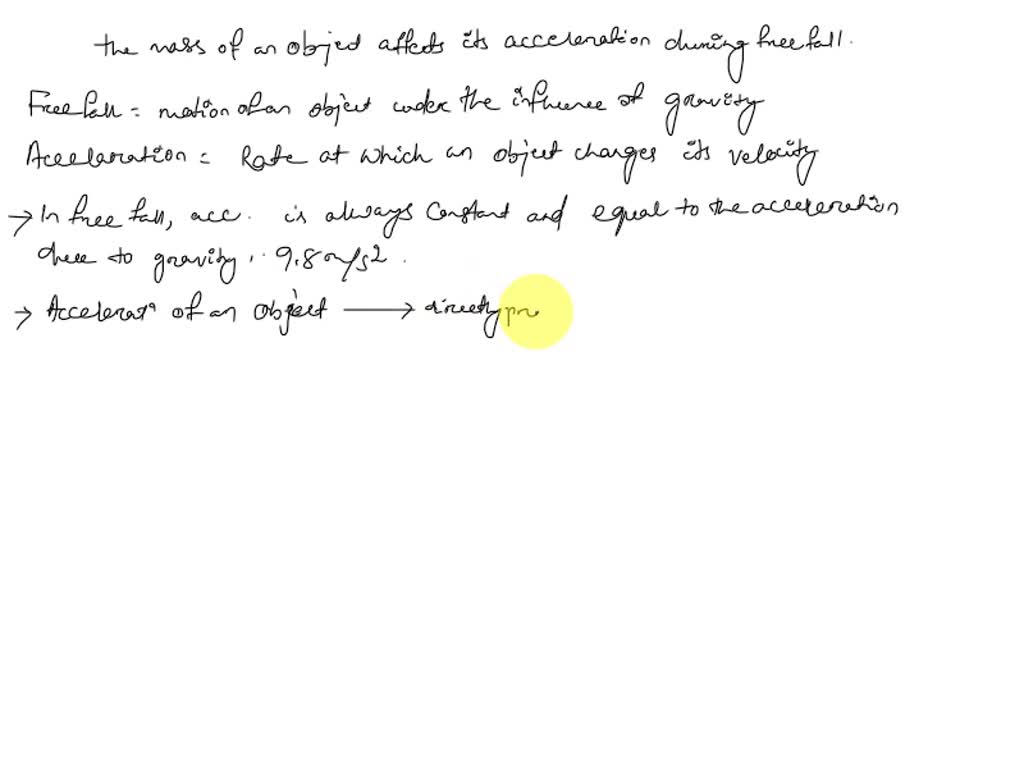 the mass of an object affects its acceleration during free fall.
Free fall = motion of an object under the influence of gravity
Acceleration = Rate at which an object changes its velocity
→ In free fall, acc. is always constant and equal to the acceleration
due to gravity, 9.8 m/s2.
→ Accelerat^n of an object ⟶ directly pro